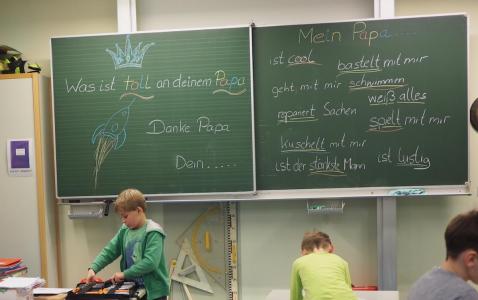 Was ist toll an deinem Papa
Danke Papa
Dein.....
Mein Papa.....
ist cool
bastelt mit mir
geht mit mir schwimmen
weiß alles
repariert Sachen
spielt mit mir
kuschelt mit mir
ist der stärkste Mann
ist lustig